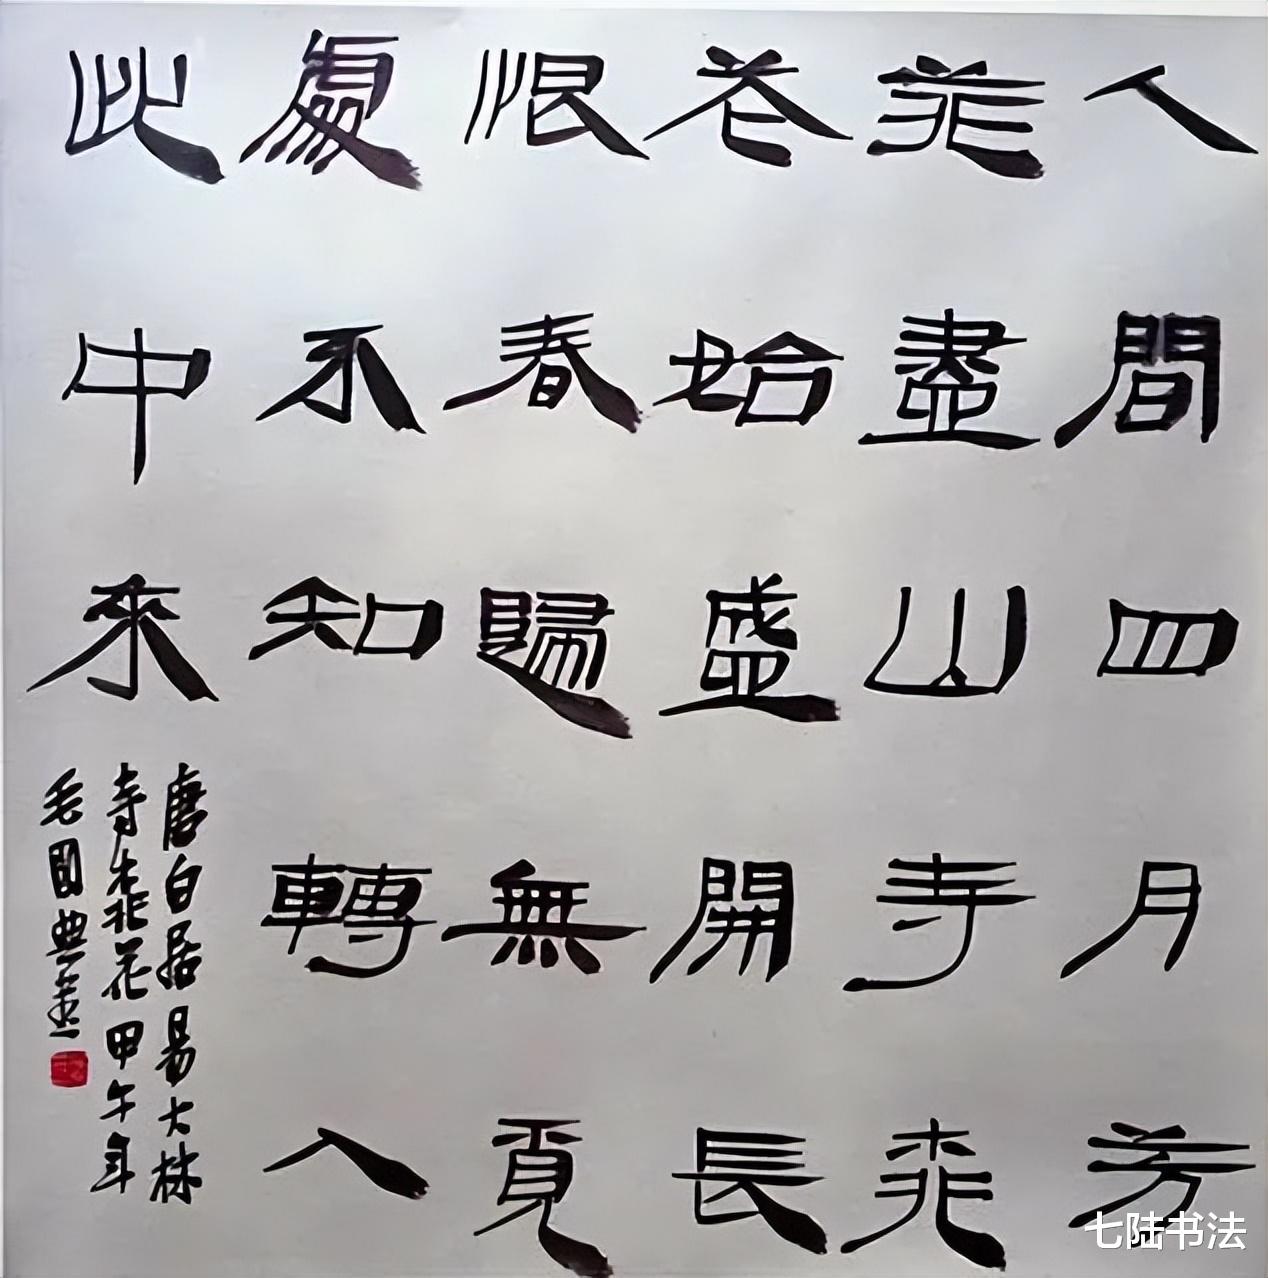 人間四月芳
菲盡山寺桃
花始盛開長
恨春歸無覓
處不知轉入
此中來
唐白居易大林
寺桃花甲午年
毛國典書
七陆书法